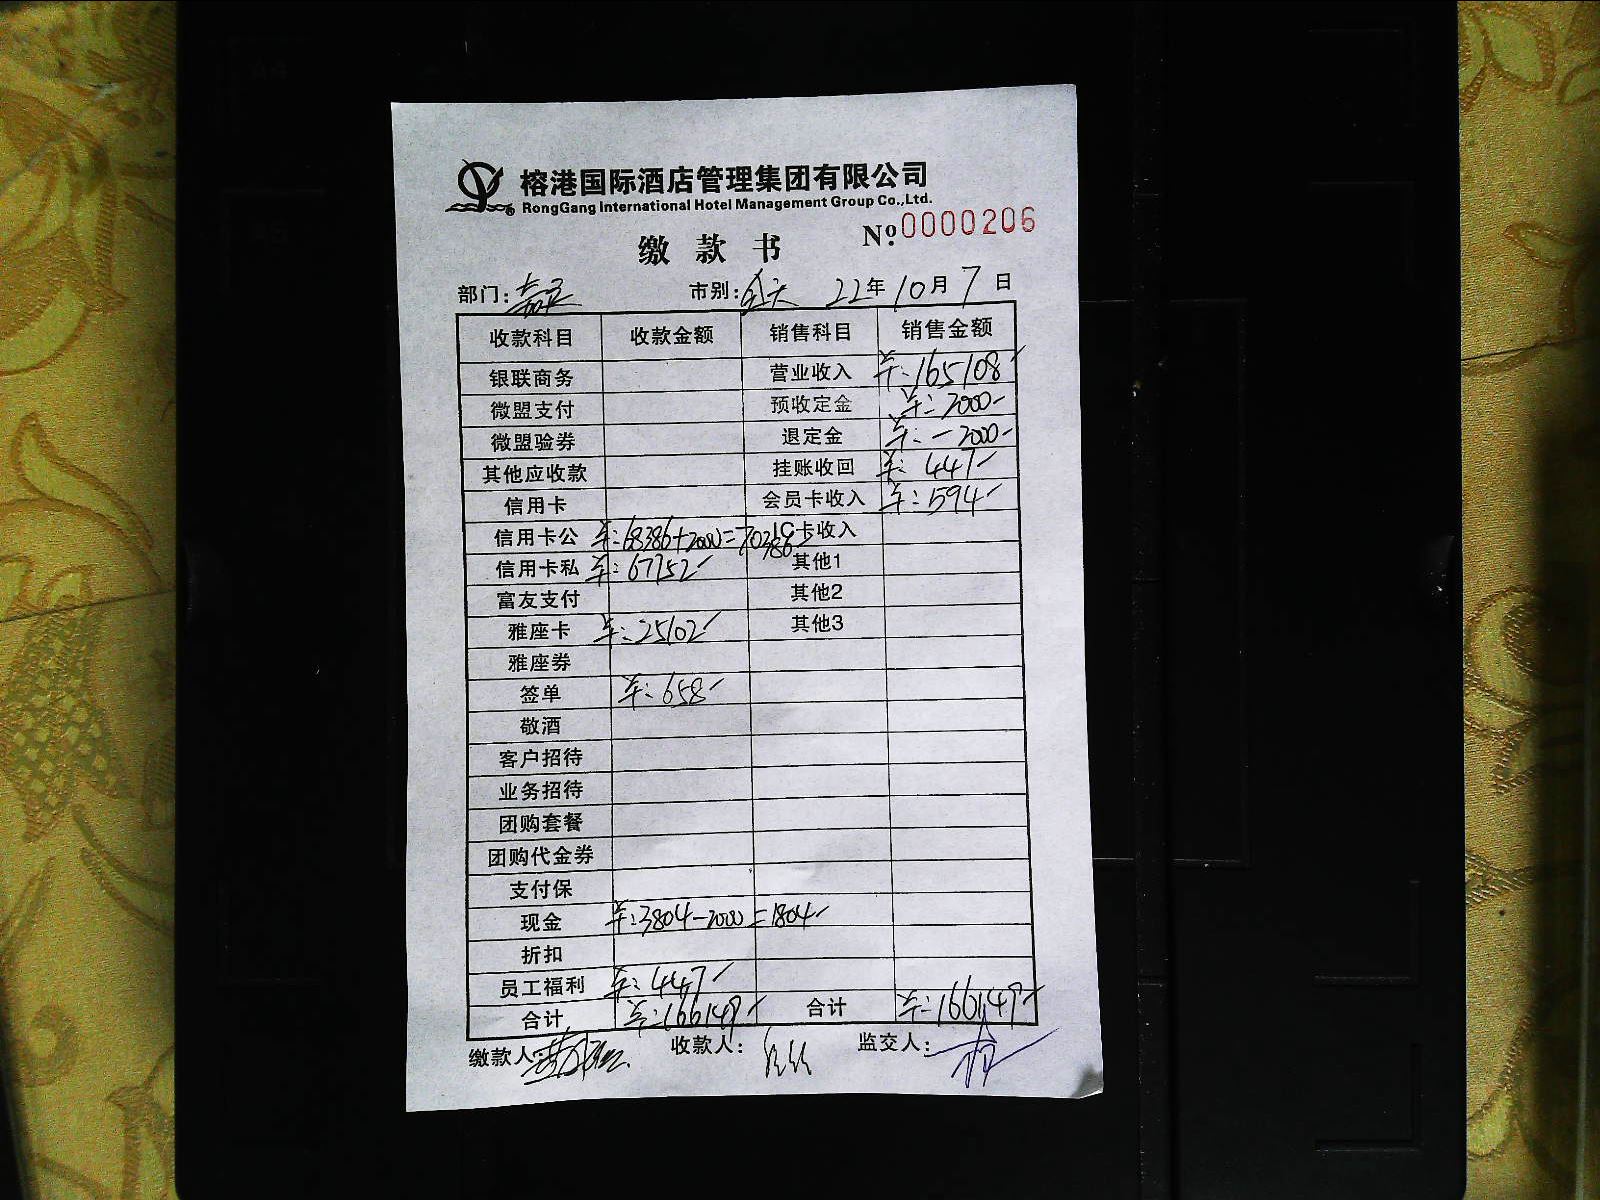 榕港国际酒店管理集团有限公司
RongGang International Hotel Management Group Co.,Ltd.
缴款书 №0000206
部门：嘉定 市别：全天 22年10月7日
收款科目 收款金额 销售科目 销售金额
银联商务 营业收入 ¥：165108
微盟支付 预收定金 ¥：2000-
微盟验券 退定金 ¥：-2000-
其他应收款 挂账收回 ¥：447-
信用卡 会员卡收入 ¥：594-
信用卡公 ¥：68386+2000=70386 IC卡收入
信用卡私 ¥：67752- 其他1
富友支付 其他2
雅座卡 ¥：25102- 其他3
雅座券
签单 ¥：658-
敬酒
客户招待
业务招待
团购套餐
团购代金券
支付保
现金 ¥：3804-2000=1804-
折扣
员工福利 ¥：447-
合计 ¥：166149- 合计 ¥：166149-
缴款人： 收款人： 监交人：